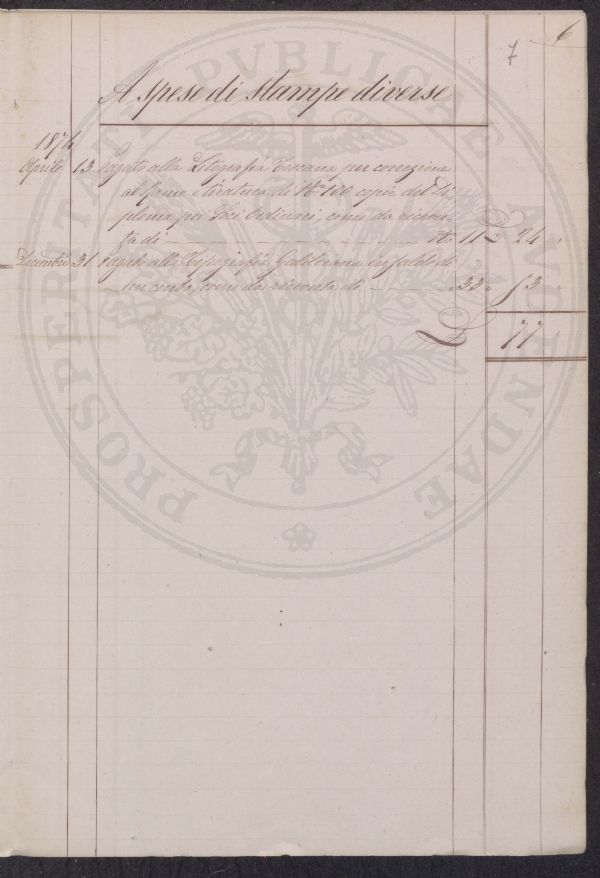 6
7
A spese di stampe diverse
1874
Aprile 13 Pagato alla Litografia Toscana per correzione
al Rame e tiratura di No 100 copie del Di-
ploma pei Soci Ordinari, come da ricevu-
ta di No 11 £ 24 "
Dicembre 31 Pagato alla Tipografia Galileiana in saldo di
un conto, come da ricevuta di " 33 " 53 "
£ 77 "
PROSPERITATI PVBLICAE AVGENDAE